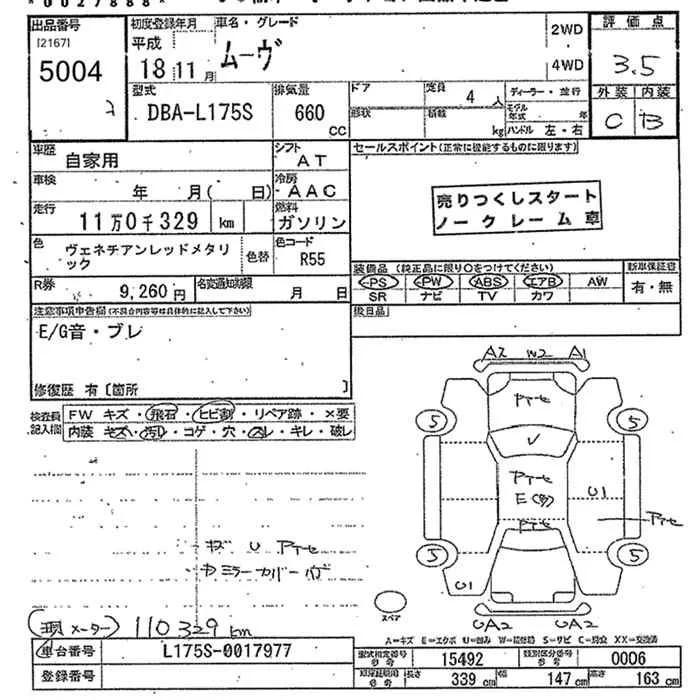 *0027888*
出品番号
[2167]
5004
初度登録年月
平成
18 11 月
車名・グレード
ムーヴ
2WD
4WD
評価点
3.5
外装 内装
C B
型式
DBA-L175S
排気量
660
CC
ドア
形状
定員
4 人
積載
kg
ディーラー・並行
モデル
年式 年
ハンドル 左・右
車歴
自家用
シフト
AT
車検
年 月( 日)
冷房
AAC
走行
11万0千329 km
燃料
ガソリン
色
ヴェネチアンレッドメタリ
ック
色替
色コード
R55
R券
9,260円
名変通知期限
月 日
セールスポイント(正常に機能するものに限ります)
売りつくしスタート
ノークレーム車
装備品 (純正品に限り○をつけてください)
PS PW ABS エアB AW
SR ナビ TV カワ
新車保証書
有・無
後日品
注意事項申告欄(不具合内容等は具体的に記入して下さい)
E/G音・ブレ
修復歴 有〔箇所 〕
検査員
記入欄
FW キズ・飛石・ヒビ割・リペア跡・×要
内装 キズ・汚れ・コゲ・穴・スレ・キレ・破レ
キズ U アテセ
ミラーカバー
A2 W2 A1
アテセ
5 5
アテセ
E
U1
アテセ
アテセ
5 5
U1
スペア
UA2 UA2
現メーター) 110329 km
A=キズ E=エクボ U=凹み W=補修跡 S=サビ C=腐食 XX=交換済
車台番号
L175S-0017977
登録番号
型式指定番号
参考
15492
類別区分番号
参考
0006
長さ
339 cm
幅
147 cm
高さ
163 cm